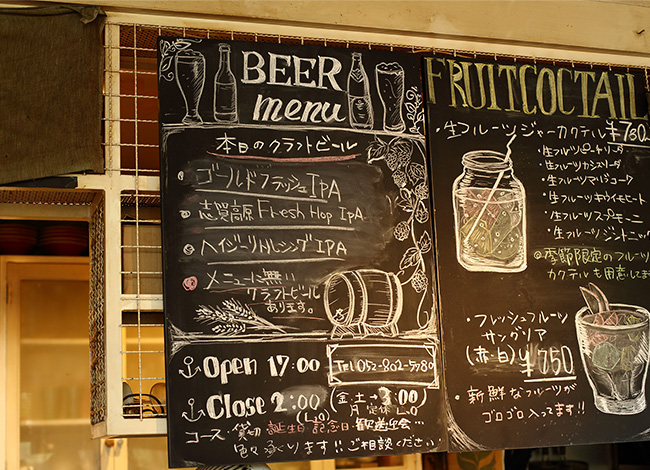 BEER
menu
本日のクラフトビール
ゴールドフラッシュIPA
志賀高原 Fresh Hop IPA
ヘイジーリトルシングIPA
メニューに無い
クラフトビール
あります。
Open 17:00
Tel 052-802-5780
Close 2:00 (L.O)
(金・土→3:00)
月 定休 L.O
コース・貸切 誕生日 記念日 歓送迎会…
色々承ります!!ご相談ください
FRUITCOCTAIL
・生フルーツジャーカクテル ¥750
・生フルーツピーチソーダ
・生フルーツカシスソーダ
・生フルーツマリブコーク
・生フルーツキウイモヒート
・生フルーツスプモーニ
・生フルーツジントニック
◎季節限定のフルーツ
カクテルも用意してま
・フレッシュフルーツ
サングリア
(赤・白) ¥750
・新鮮なフルーツが
ゴロゴロ入ってます!!